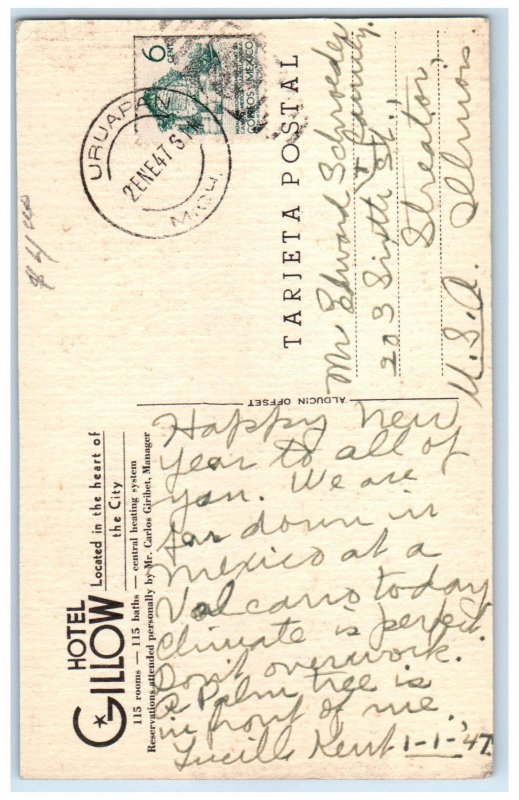 HOTEL
GILLOW
Located in the heart of
the City
115 rooms — 115 baths — central heating system
Reservations attended personally by Mr. Carlos Giribet, Manager
Happy New
Year to all of
you. We are
far down in
Mexico at a
Valcano today
Climate is perfect.
Don't overwork.
A Palm tree is
in front of me.
Lucille Kent 1-1-'47
ALDUCIN OFFSET
TARJETA POSTAL
Mr Edward Schroeder
& Family.
203 Sixth St.,
Streator,
Illinois.
U.S.A.
6
CENT
CORREOS MEXICO
URUAPAN
2 ENE 47
MICH.
$4